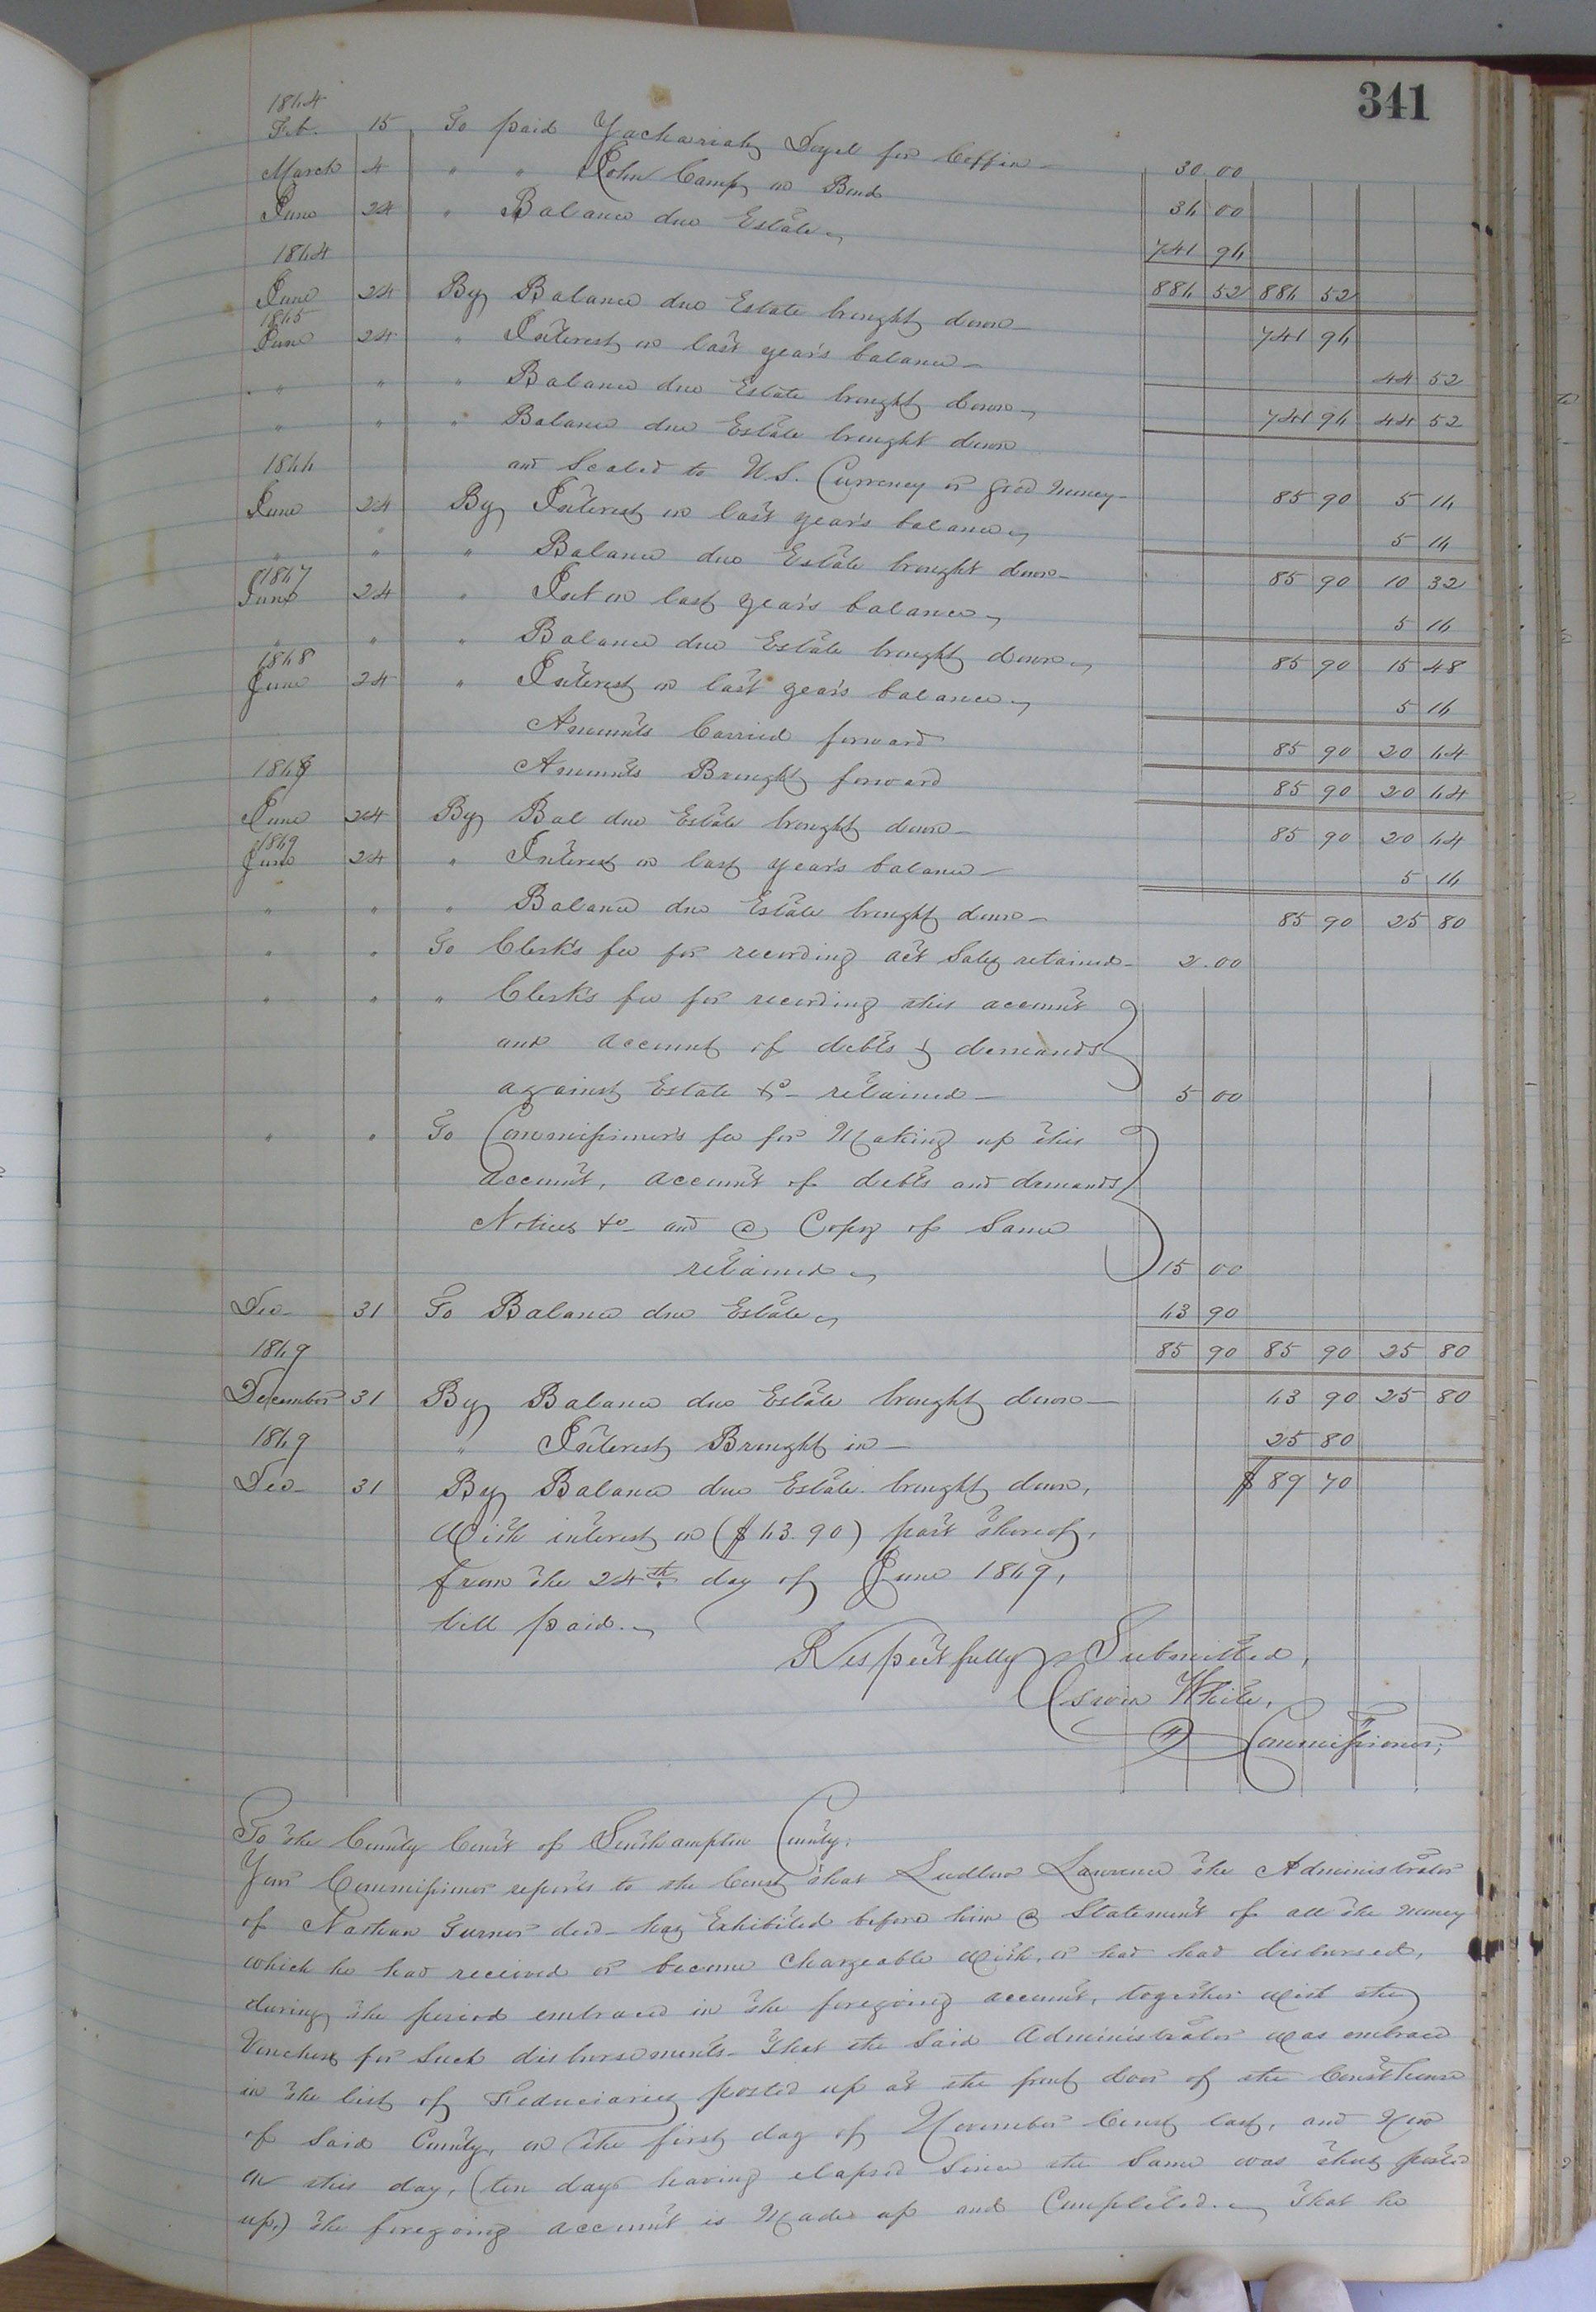 341
1864
Feb. 15 To paid Zachariah Doyel for Coffin 30.00
March 4 " " John Camp on Bond 36 00
June 24 " Balance due Estate 741 96
1864 886 52 886 52
June 24 By Balance due Estate brought down 741 96
1865
June 24 " Interest on last year's balance 44 52
" " " Balance due Estate brought down 741 96 44 52
" " " Balance due Estate brought down
and Scaled to U.S. Currency or good Money 85 90 5 16
1866
June 24 By Interest on last year's balance 5 16
" " " Balance due Estate brought down 85 90 10 32
1867
June 24 " Int on last year's balance 5 16
" " " Balance due Estate brought down 85 90 15 48
1868
June 24 " Interest on last year's balance 5 16
Amounts Carried forward 85 90 20 64
1868 Amounts Brought forward 85 90 20 64
June 24 By Bal due Estate brought down 85 90 20 64
1869
June 24 " Interest on last year's balance 5 16
" " " Balance due Estate brought down 85 90 25 80
" " To Clerk's fee for recording act Sales retained 2.00
" " " Clerk's fee for recording this account
and account of debts & demands
against Estate &c retained 5 00
" " To Commissioner's fee for Making up this
account, account of debts and demands
Notices &c and a Copy of Same
retained 15 00
Dec 31 To Balance due Estate 63 90
1869 85 90 85 90 25 80
December 31 By Balance due Estate brought down 63 90 25 80
1869 " Interest Brought in 25 80
Dec 31 By Balance due Estate brought down, $ 89 70
With interest on ($63.90) part thereof,
from the 24th day of June 1869,
till paid.
Respectfully Submitted,
White,
Commissioner;
To the County Court of Southampton County:
Your Commissioner reports to the Court that Ludlow Lawrence the Administrator
of Nathan Turner decd has Exhibited before him a Statement of all the money
which he had received or become Chargeable with, or had had disbursed,
during the period embraced in the foregoing account, together with the
Vouchers for Such disbursements. That the Said Administrator was embraced
in the list of Fiduciaries posted up at the front door of the Court house
of Said County, on the first day of November Court last, and Now
on this day, (ten days having elapsed Since the Same was thus posted
up,) the foregoing account is Made up and Completed. That he